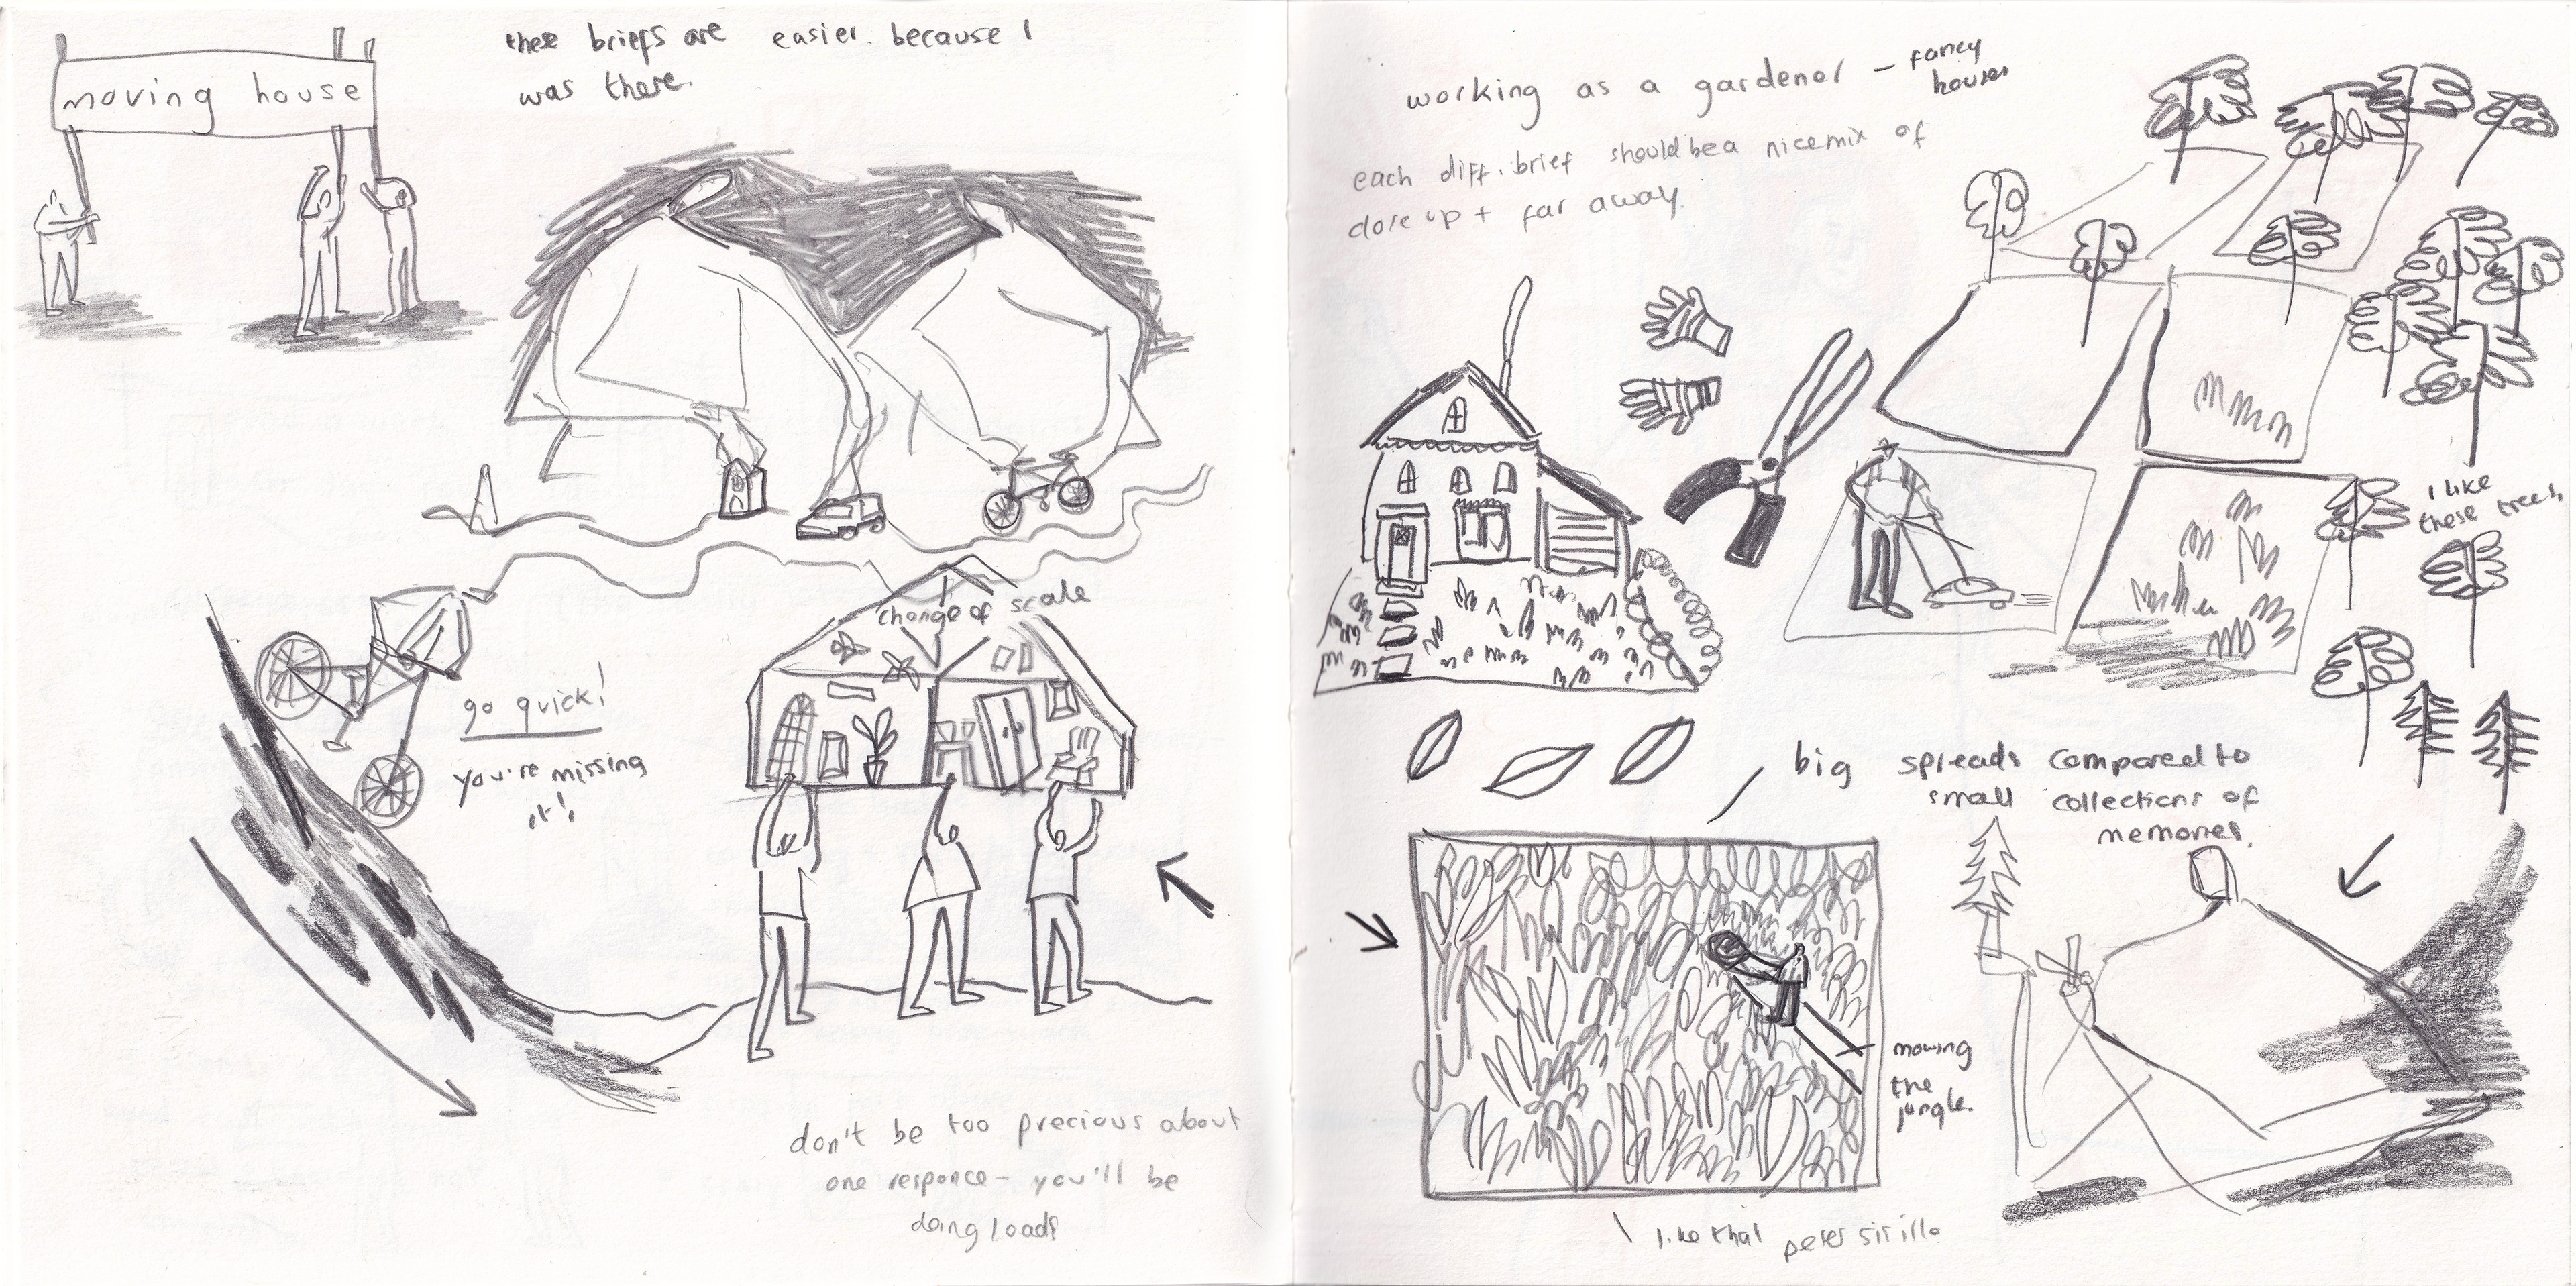 moving house
these briefs are easier. because I
was there.
change of scale
go quick!
you're missing
it!
don't be too precious about
one responce - you'll be
doing loads
working as a gardener - fancy
houses
each diff. brief should be a nice mix of
close up + far away.
I like
these trees
big spreads compared to
small collections of
memories.
mowing
the
jungle.
like that peter